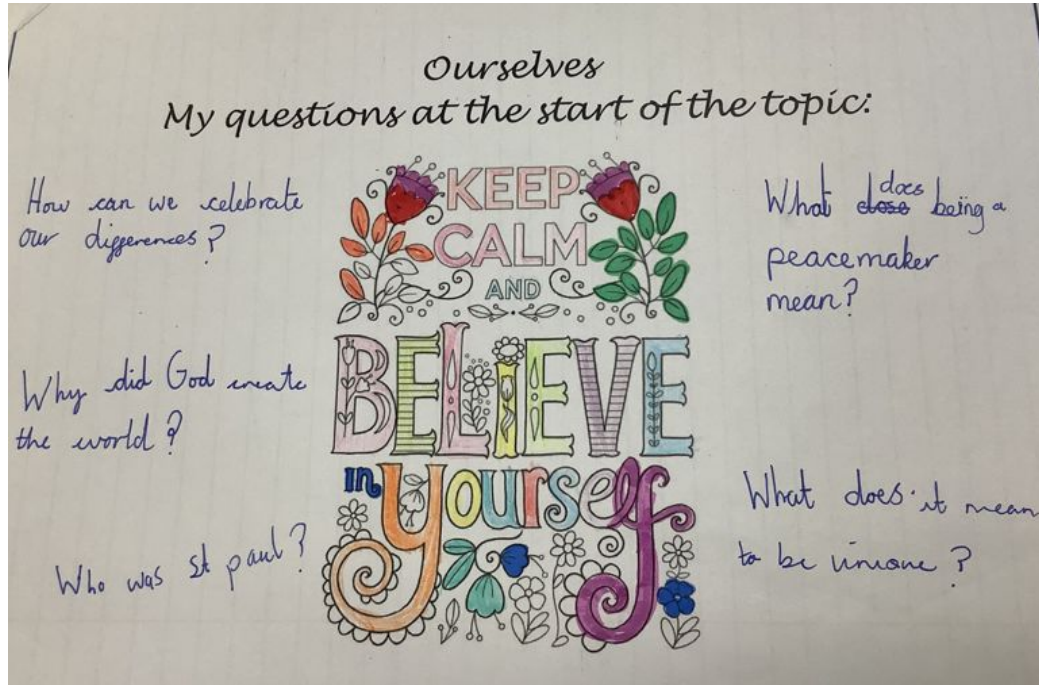 Ourselves
My questions at the start of the topic:
How can we celebrate
our differences?
Why did God create
the world?
Who was st paul?
KEEP
CALM
AND
BELIEVE
in
yourself
What does being a
peacemaker
mean?
What does it mean
to be